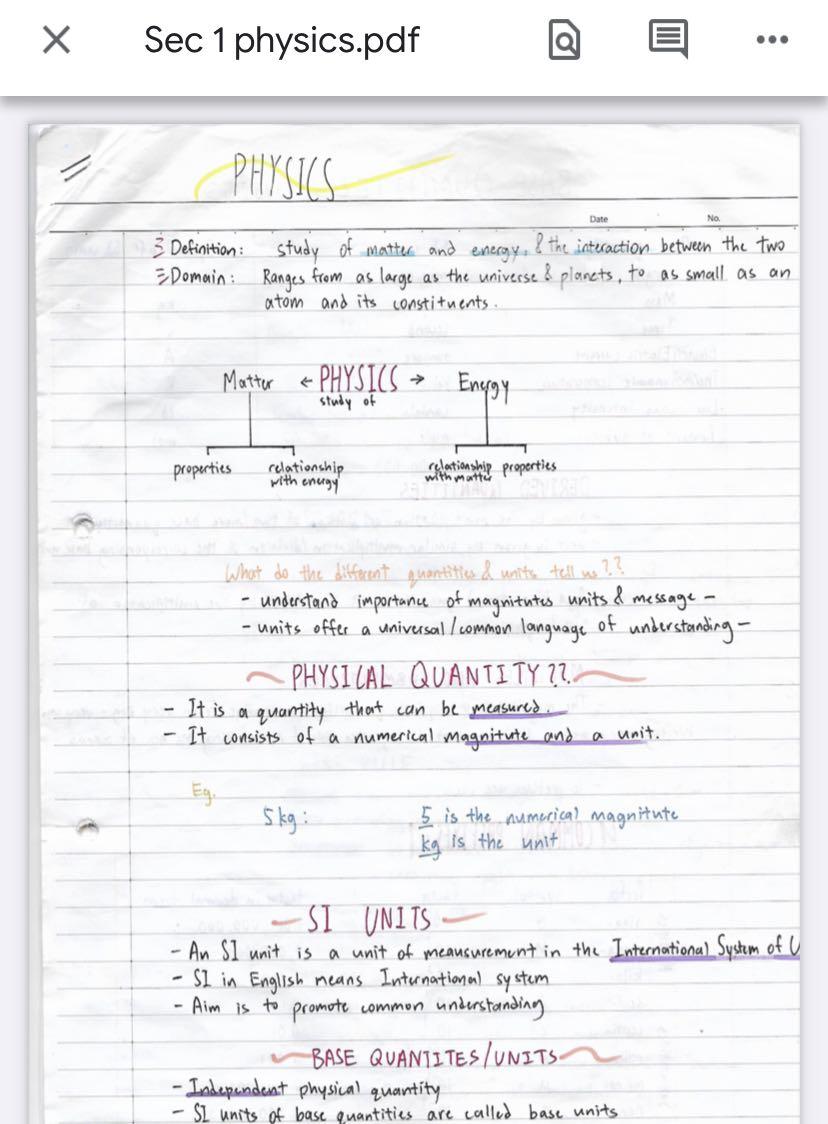 Sec 1 physics.pdf
PHYSICS
Date No.
Definition: study of matter and energy, & the interaction between the two
Domain: Ranges from as large as the universe & planets, to as small as an
atom and its constituents.
Matter ← PHYSICS → Energy
study of
properties relationship with energy relationship with matter properties
What do the different quantities & units tell us??
- understand importance of magnitutes units & message -
- units offer a universal/common language of understanding -
PHYSICAL QUANTITY??
- It is a quantity that can be measured.
- It consists of a numerical magnitute and a unit.
Eg.
5kg: 5 is the numerical magnitute
kg is the unit
SI UNITS
- An SI unit is a unit of meausurement in the International System of U
- SI in English means International system
- Aim is to promote common understanding
BASE QUANTITES/UNITS
- Independent physical quantity
- SI units of base quantities are called base units